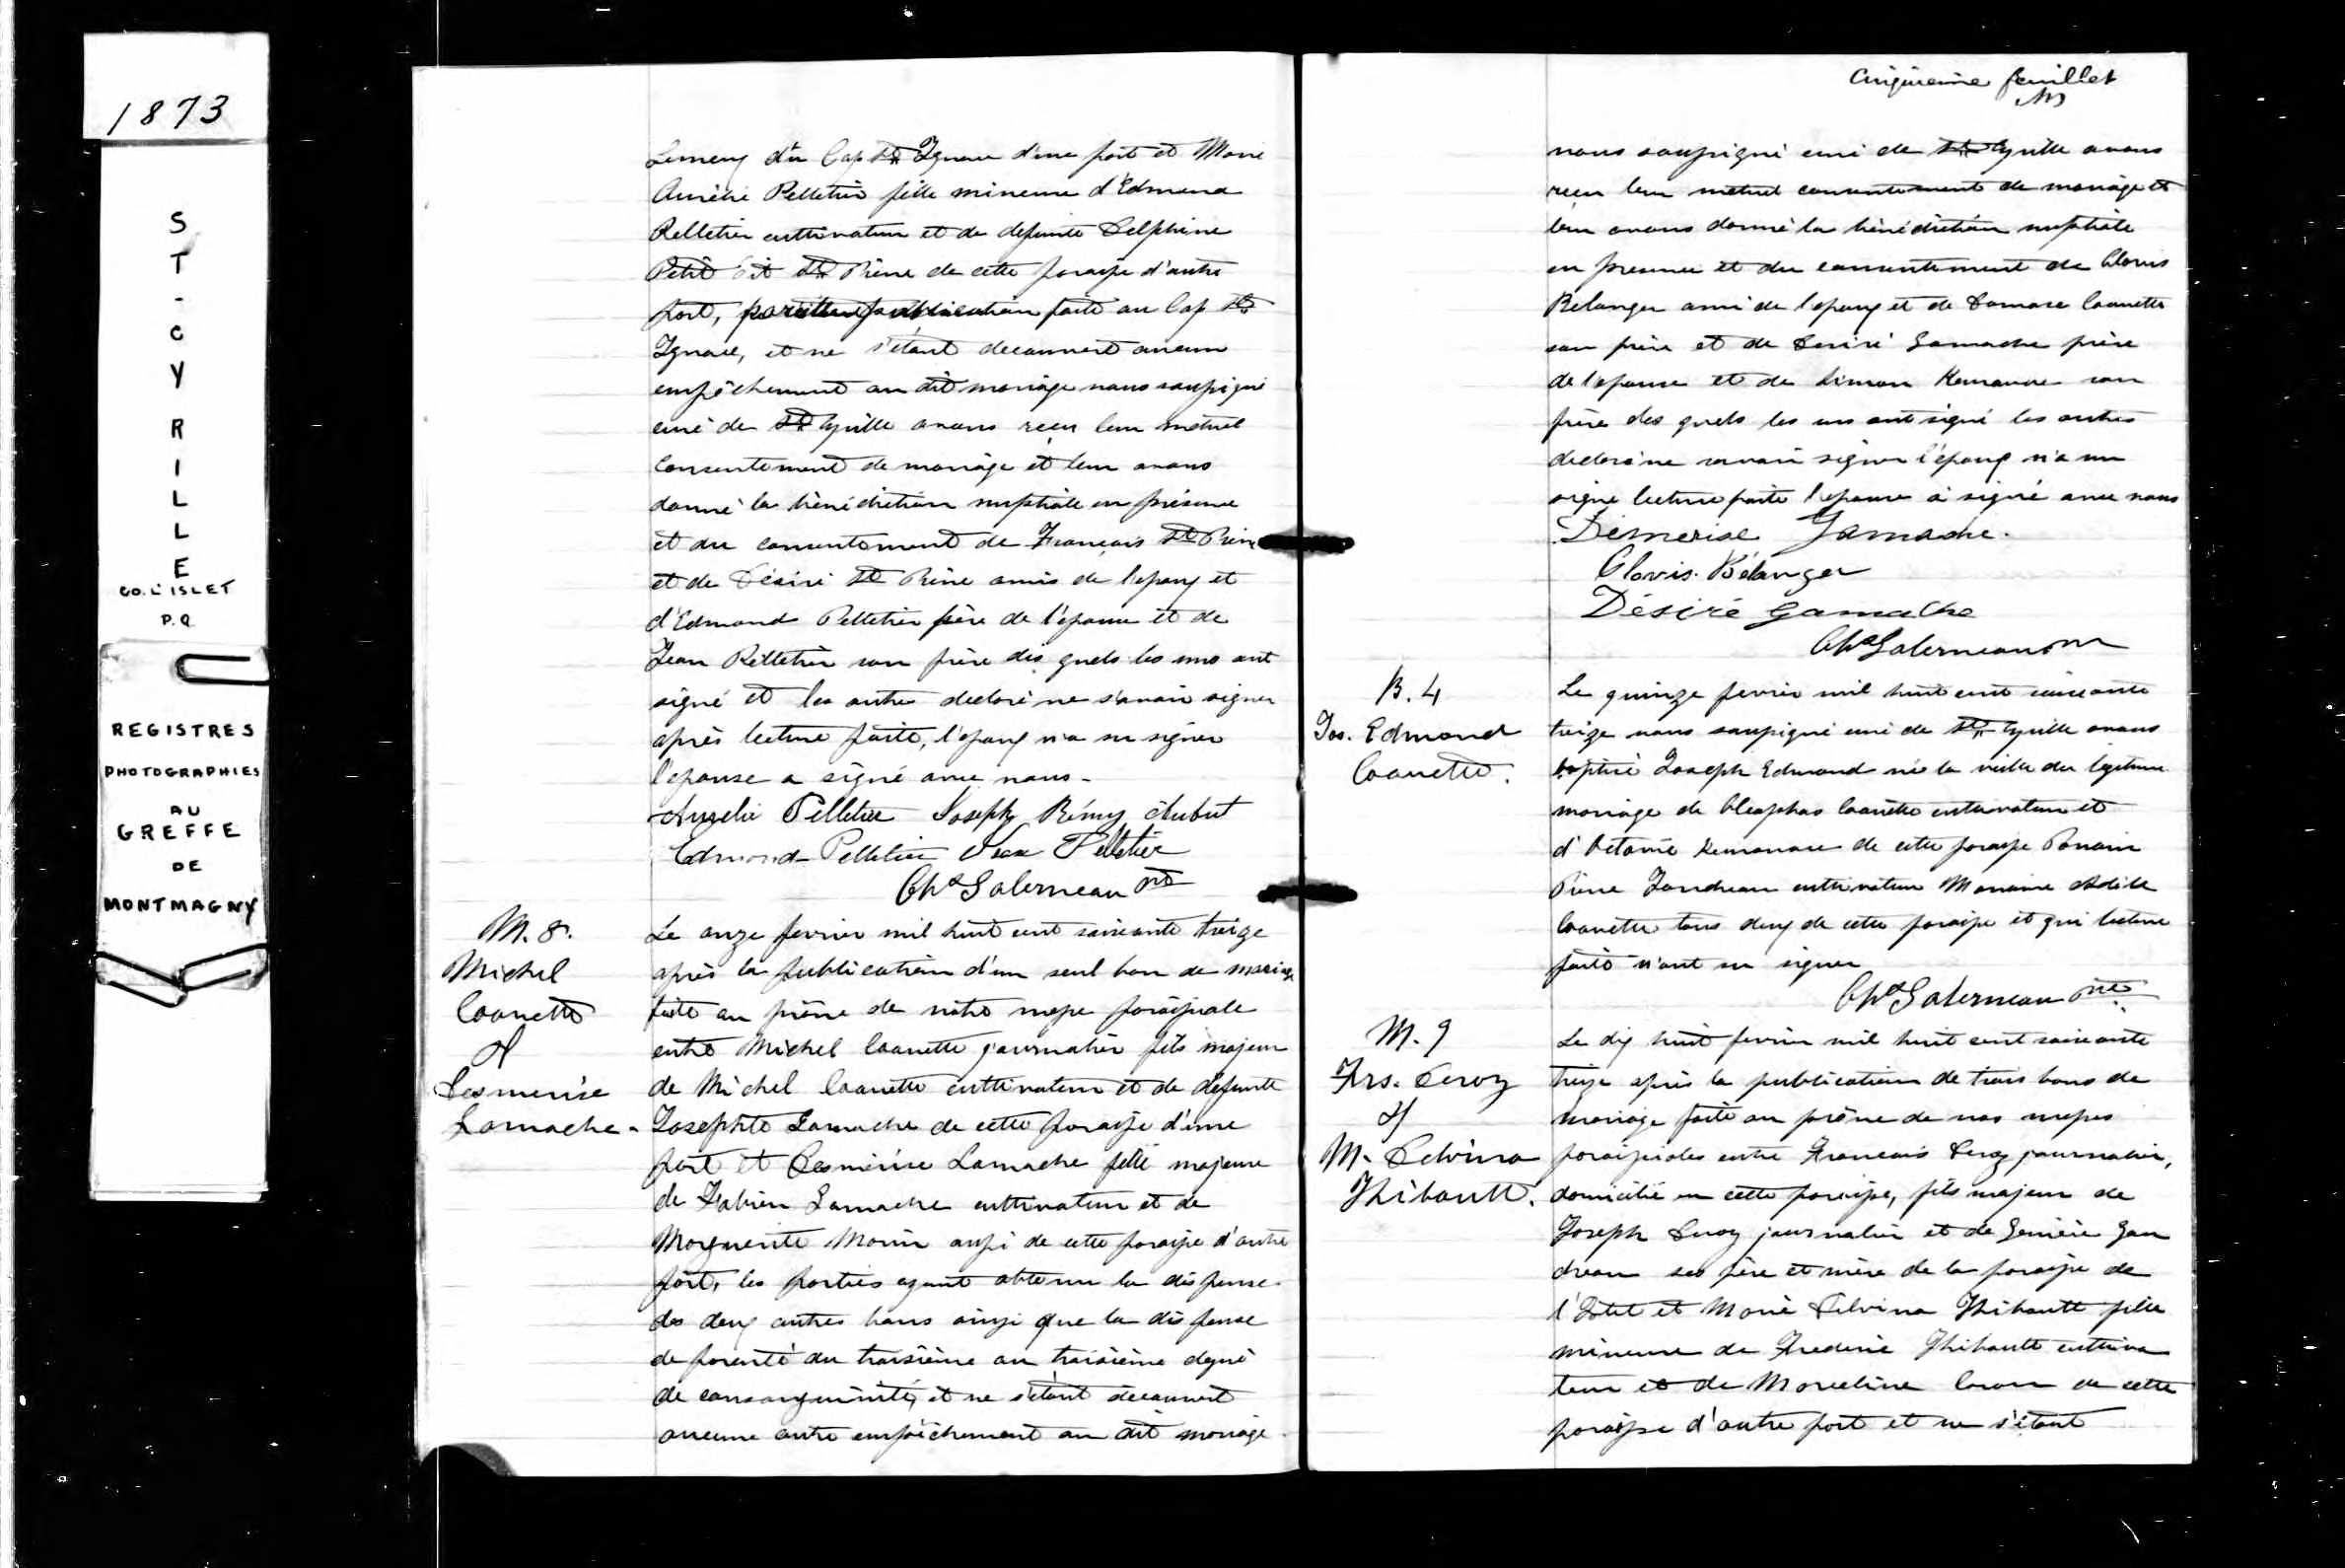 1873
ST-CYRILLE
CO. L'ISLET
P.Q.
REGISTRES
PHOTOGRAPHIES
AU
GREFFE
DE
MONTMAGNY
Lemay du Cap St Ignace d'une part et Marie
Aurélie Pelletier fille mineure d'Edmond
Pelletier cultivateur et de defunte Delphine
Petit dit St Pierre de cette paroisse d'autre
part, pareille publication faite au Cap St
Ignace, et ne s'étant decouvert aucun
empêchement au dit mariage nous soussigné
curé de St Cyrille avons reçu leur mutuel
consentement de mariage et leur avons
donné la bénédiction nuptiale en présence
et du consentement de Francois St Pierre
et de Désiré St Pierre amis de l'epoux et
d'Edmond Pelletier père de l'épouse et de
Jean Pelletier son frère des quels les uns ont
signé et les autres declaré ne savoir signer
après lecture faite, l'epoux n'a su signer
l'epouse a signé avec nous-
Aurelie Pelletier Joseph Rémy Aubut
Edmond Pelletier Jean Pelletier
Chs Galerneau Ptre
M. 8.
Michel
Caouette
&
Desmerise
Gamache-
Le onze fevrier mil huit cent soixante treize
après la publication d'un seul ban de mariage
faite au prône de notre messe paroissiale
entre Michel Caouette journalier fils majeur
de Michel Caouette cultivateur et de defunte
Josephte Gamache de cette paroisse d'une
part et Desmérise Gamache fille majeure
de Fabien Gamache cultivateur et de
Marguerite Morin aussi de cette paroisse d'autre
part, les parties ayant obtenu la dispense
des deux autres bans ainsi que la dispense
de parenté du troisième au troisième degré
de consanguinité, et ne s'étant decouvert
aucune autre empêchement au dit mariage
Cinquieme feuillet
nous soussigné curé de St Cyrille avons
reçu leur mutuel consentement de mariage et
leur avons donné la bénédiction nuptiale
en presence et du consentement de Clovis
Belanger ami de l'epoux et de Damase Caouette
son frère et de Desiré Gamache frère
de l'epouse et de Simon son
frère des quels les uns ont signé les autres
declaré ne savoir signer l'époux n'a su
signé lecture faite l'epouse a signé avec nous
Démerise Gamache.
Clovis Bélanger
Désiré Gamache
Chs Galerneau Ptre
B. 4
Jos. Edmond
Caouette.
Le quinze fevrier mil huit cent soixante
treize nous soussigné curé de St Cyrille avons
baptisé Joseph Edmond né la veille du légitime
mariage de Cleophas Caouette cultivateur et
d' de cette paroisse Parrain
Pierre Jondreau cultivateur Marraine Adèle
Caouette tous deux de cette paroisse et qui lecture
faite n'ont su signer
Chs Galerneau Ptre
M. 9
Frs. Leroy
&
M. Delvina
Thibault.
Le dix huit fevrier mil huit cent soixante
treize après la publication de trois bans de
mariage faite au prône de nos messes
paroissiales entre Francois Leroy journalier,
domicilié en cette paroisse, fils majeur de
Joseph Leroy journalier et de
ses père et mère de la paroisse de
l'Islet et Marie Delvina Thibault fille
mineure de Frederic Thibault cultiva
teur et de Marceline Caron de cette
paroisse d'autre part et ne s'étant